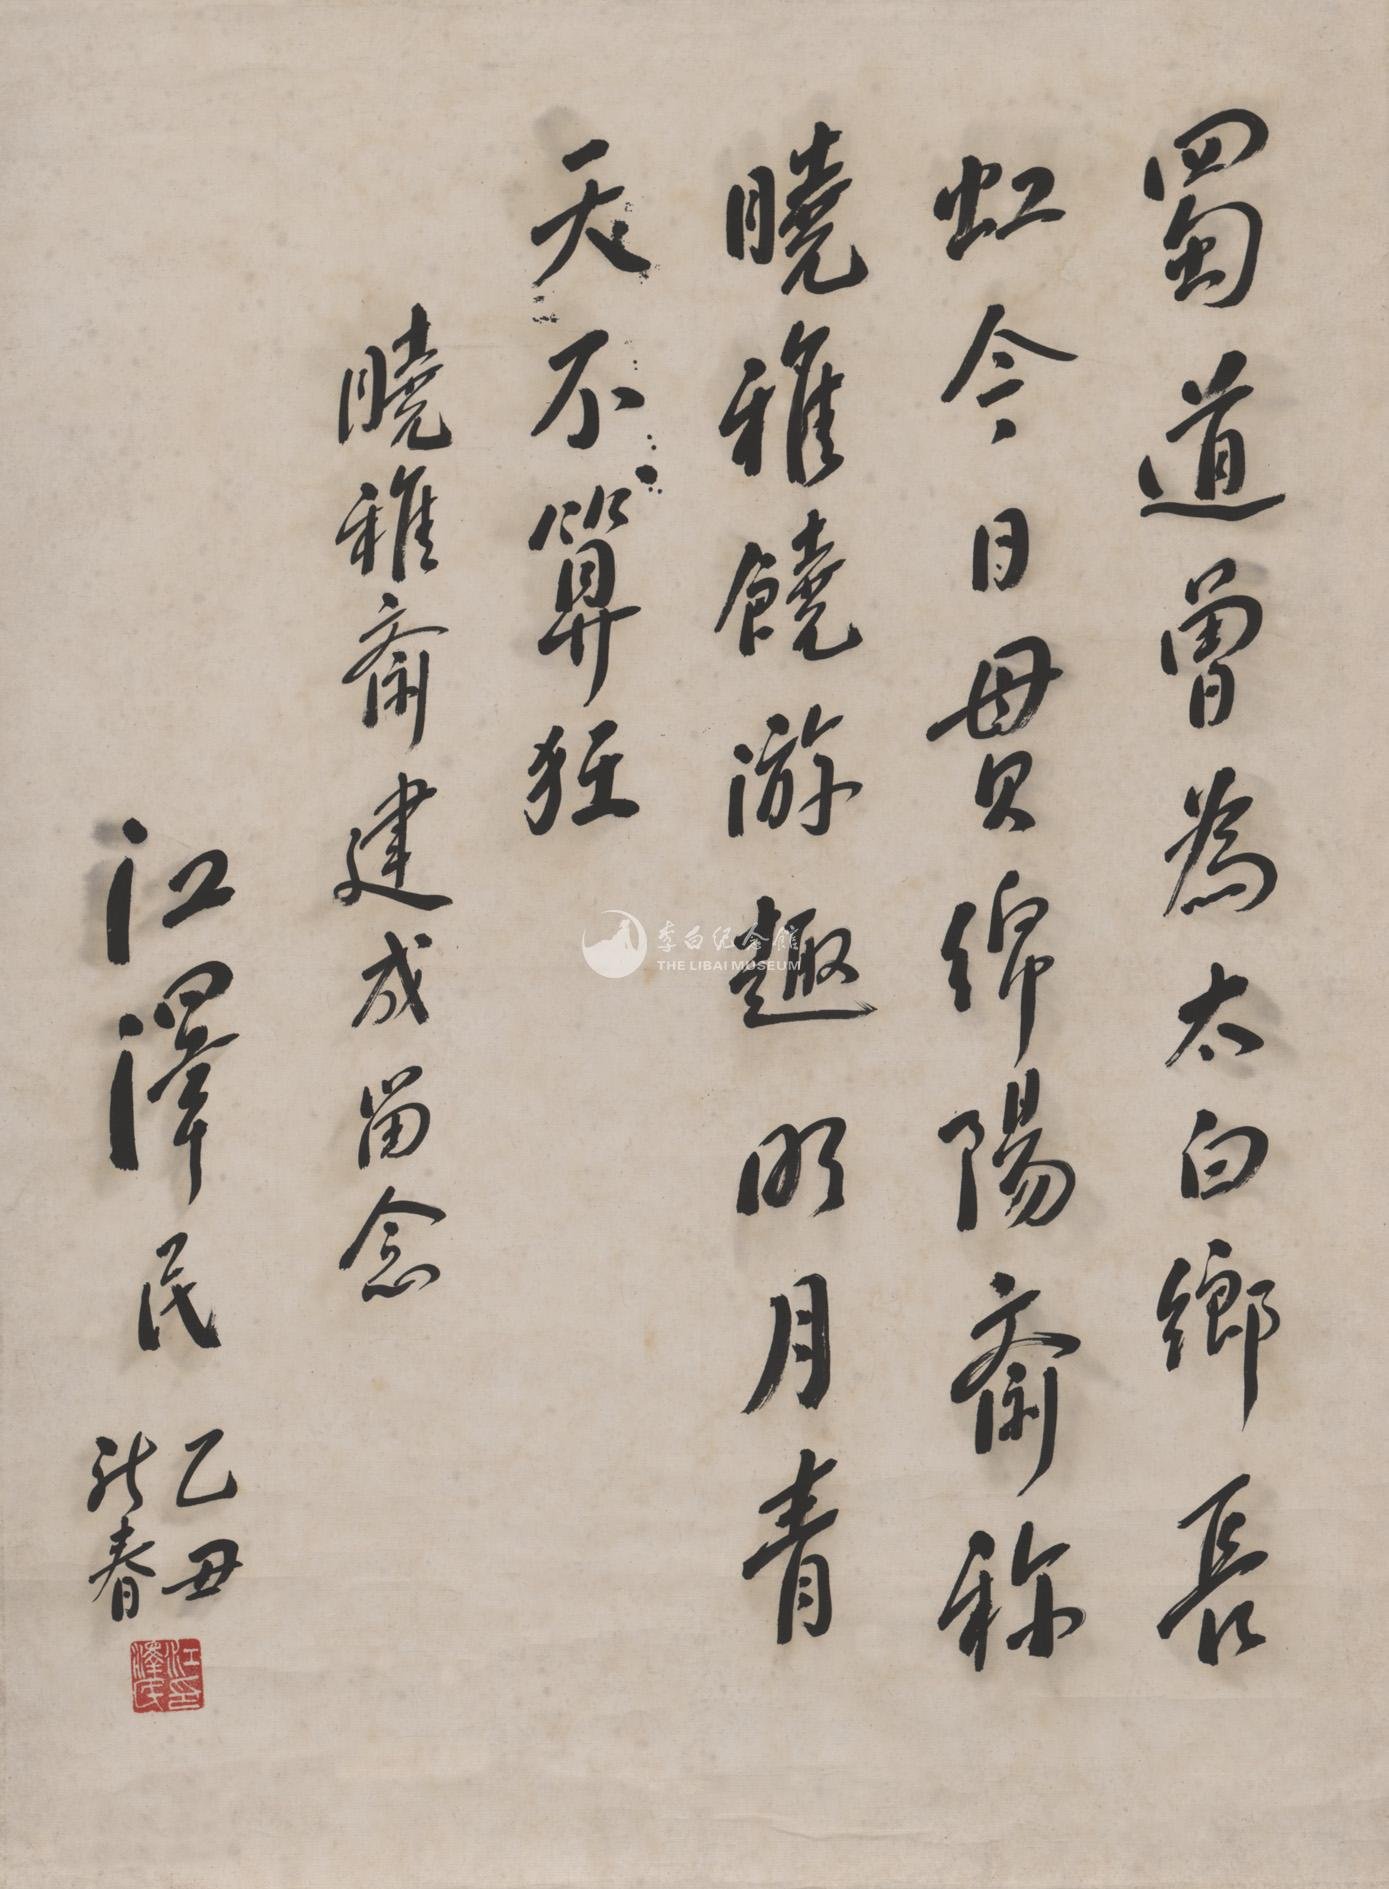 蜀道曾為太白鄉長
虹今日贯綿陽齋称
曉雅饒游趣明月青
天不算狂
曉雅齋建成留念
江澤民
乙丑
新春
江澤民印
李白纪念馆
THE LIBAI MUSEUM